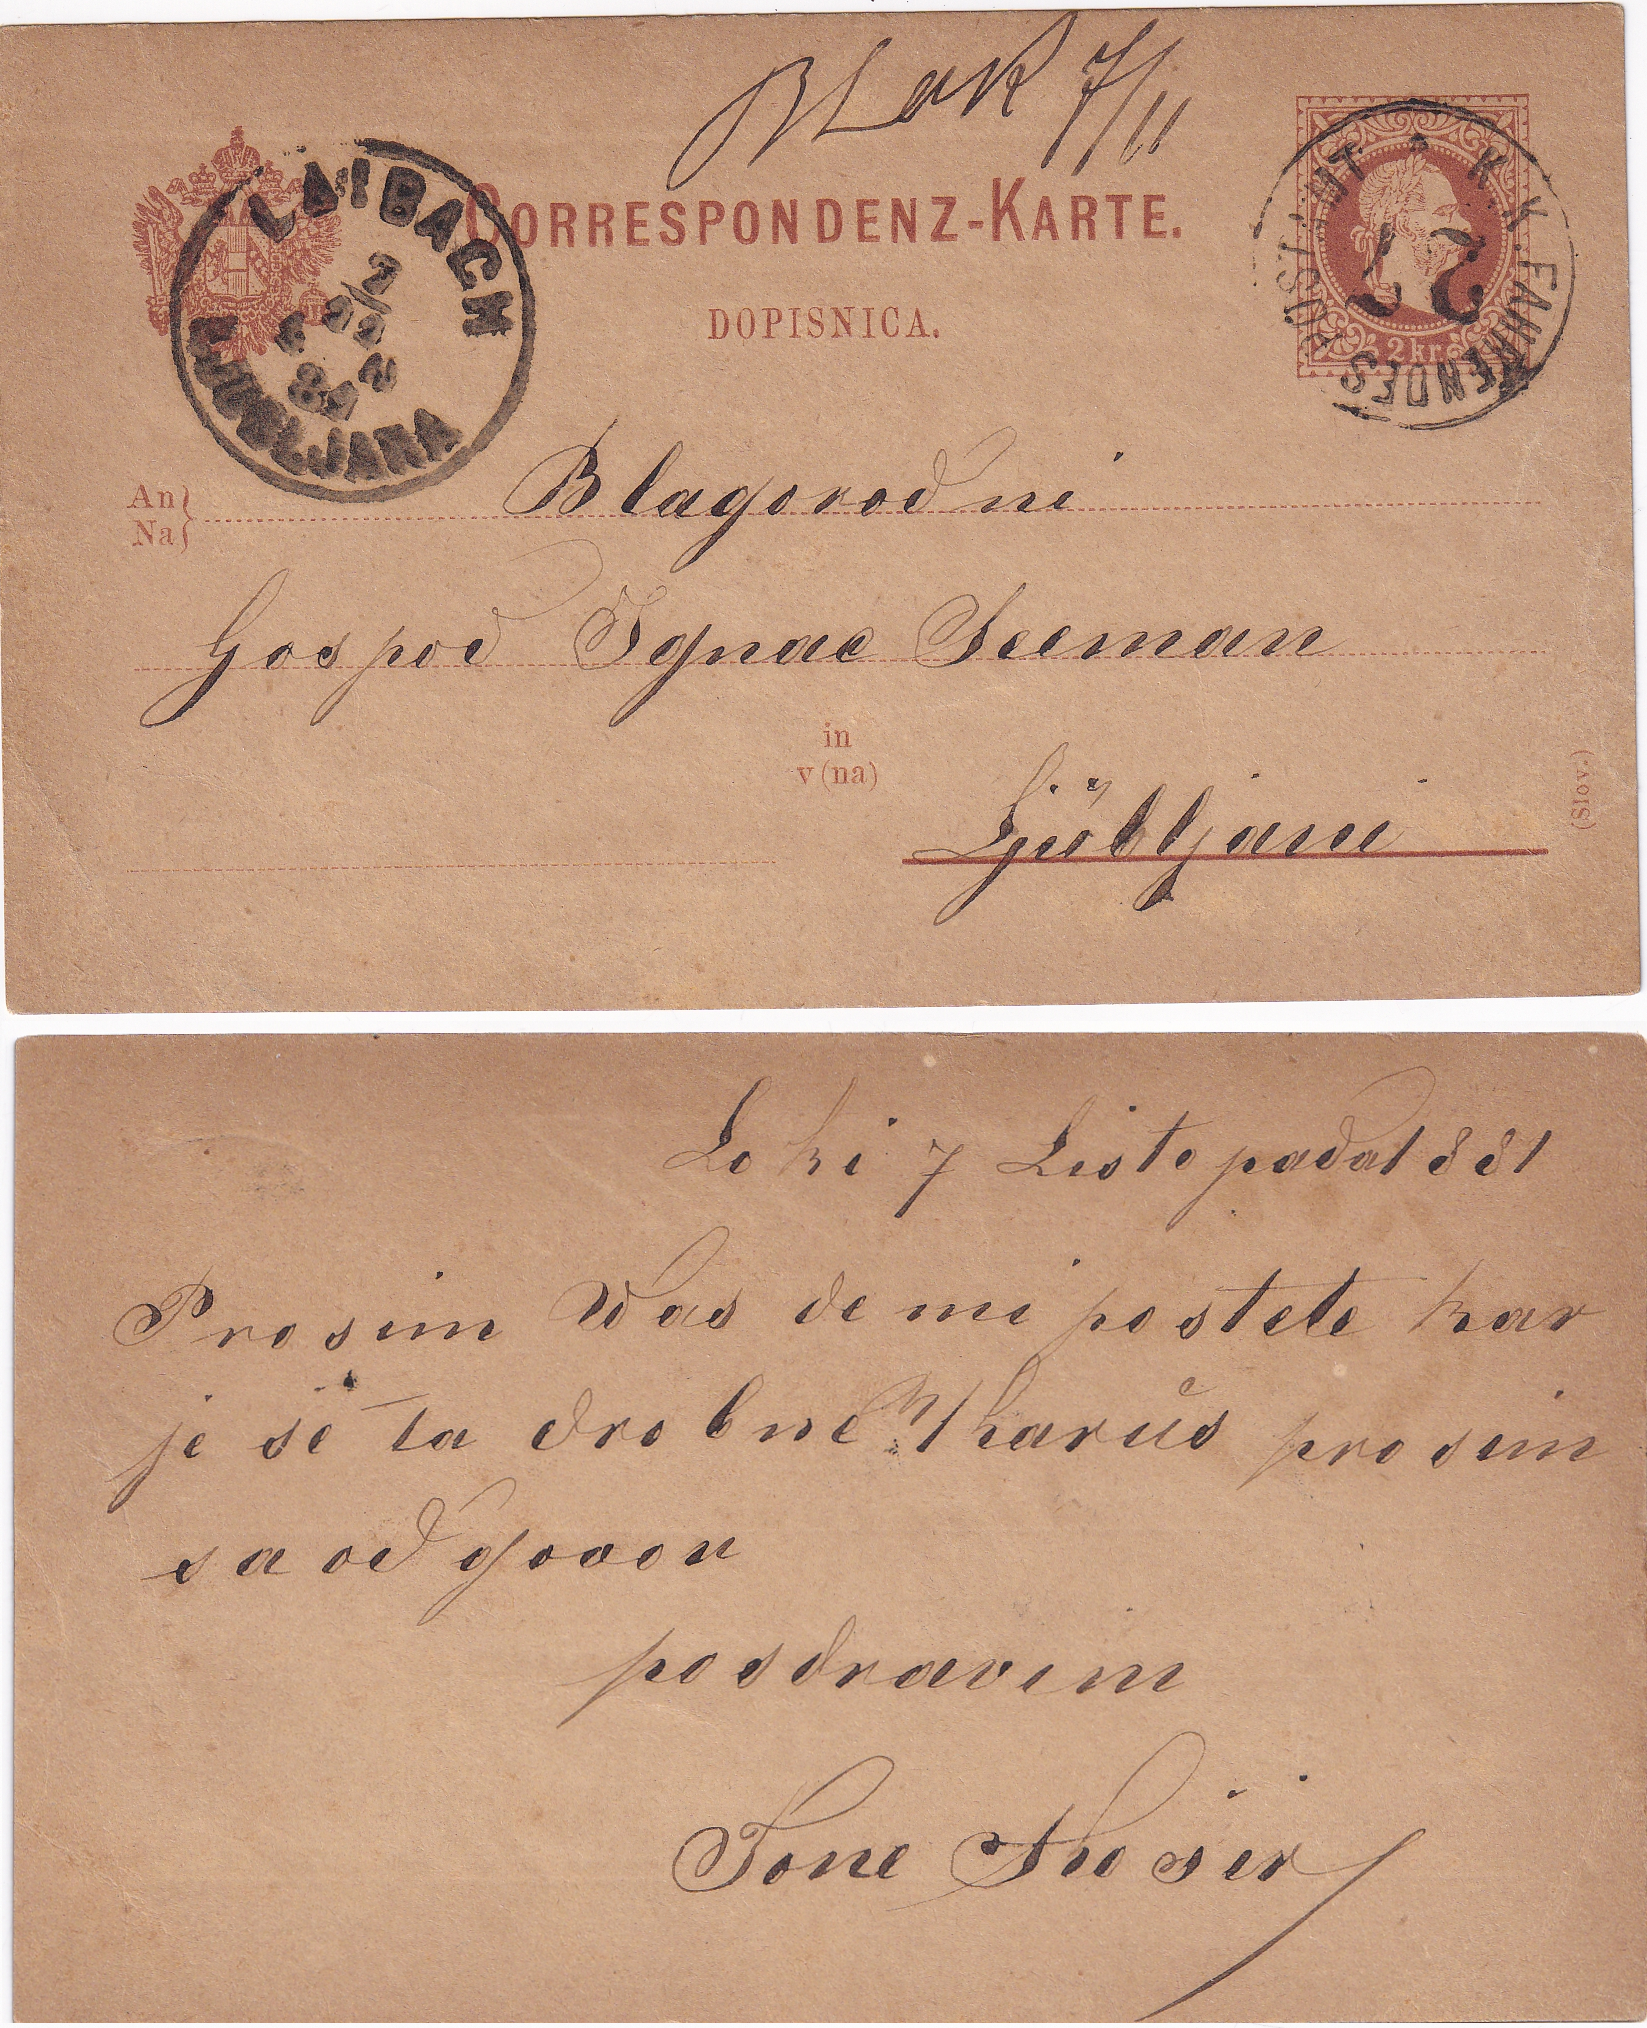 BLak 7/11
CORRESPONDENZ-KARTE.
DOPISNICA.
LAIBACH
7/11
81
LJUBLJANA
K. K. FAHRENDES POSTAMT
27
2 kr.
An
Na
Blagorodni
Gospod Ignac Seeman
in
v (na)
Ljubljani
(Slov.)
Loki 7 Listopada 1881
Prosim Was de mi postete kar
je še ta drobne prosim
sa odgovor
posdravim
Tone